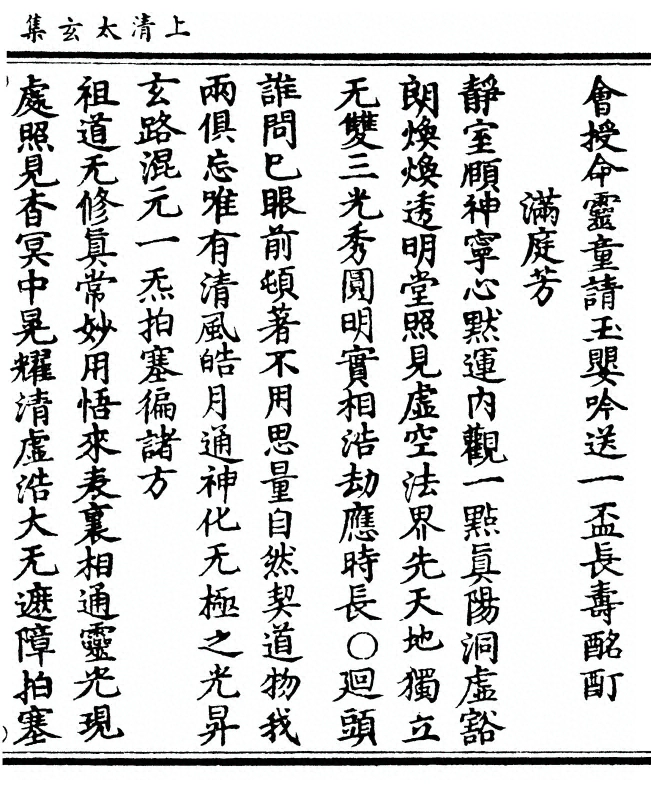 上清太玄集
會授命靈童請玉嬰吟送一盃長壽酩酊
滿庭芳
靜室頤神寧心默運內觀一點眞陽洞虛豁
朗煥煥透明堂照見虛空法界先天地獨立
无雙三光秀圓明實相浩劫應時長○廻頭
誰問巳眼前頓著不用思量自然契道物我
兩俱忘唯有清風皓月通神化无極之光昇
玄路混元一炁拍塞徧諸方
祖道无修眞常妙用悟來表裏相通靈光現
處照見杳冥中晃耀清虛浩大无遮障拍塞